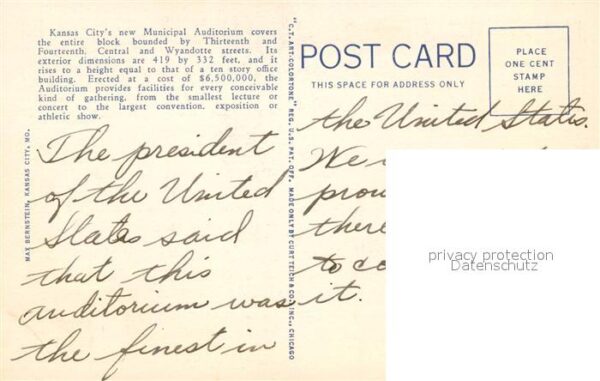 Kansas City's new Municipal Auditorium covers
the entire block bounded by Thirteenth and
Fourteenth, Central and Wyandotte streets. Its
exterior dimensions are 419 by 332 feet, and it
rises to a height equal to that of a ten story office
building. Erected at a cost of $6,500,000, the
Auditorium provides facilities for every conceivable
kind of gathering, from the smallest lecture or
concert to the largest convention, exposition or
athletic show.
MAX BERNSTEIN, KANSAS CITY, MO.
The president
of the United
States said
that this
auditorium was
the finest in
"C.T. ART-COLORTONE" REG. U.S. PAT. OFF. MADE ONLY BY CURT TEICH & CO., INC., CHICAGO
POST CARD
THIS SPACE FOR ADDRESS ONLY
PLACE
ONE CENT
STAMP
HERE
the United States.
We
prou
there
to co
it.
privacy protection
Datenschutz